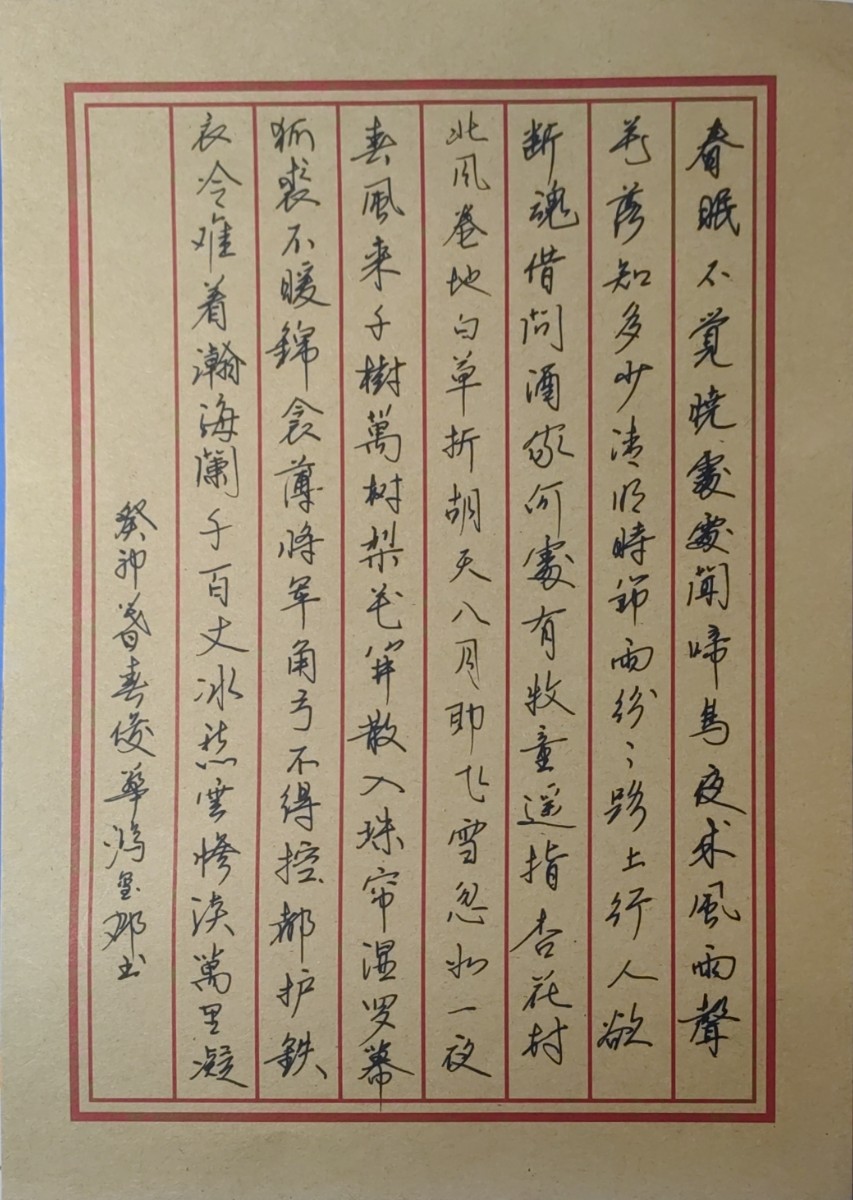 春眠不覚曉處處聞啼鳥夜來風雨聲
花落知多少清明時節雨紛〻路上行人欲
断魂借问酒家何處有牧童遥指杏花村
北风卷地白草折胡天八月即飞雪忽如一夜
春風来千樹萬树梨花開散入珠帘湿罗幕
狐裘不暖錦衾薄将军角弓不得控都护鉄
衣冷难着瀚海闌干百丈冰愁雲惨淡萬里凝
癸卯暮春俊華